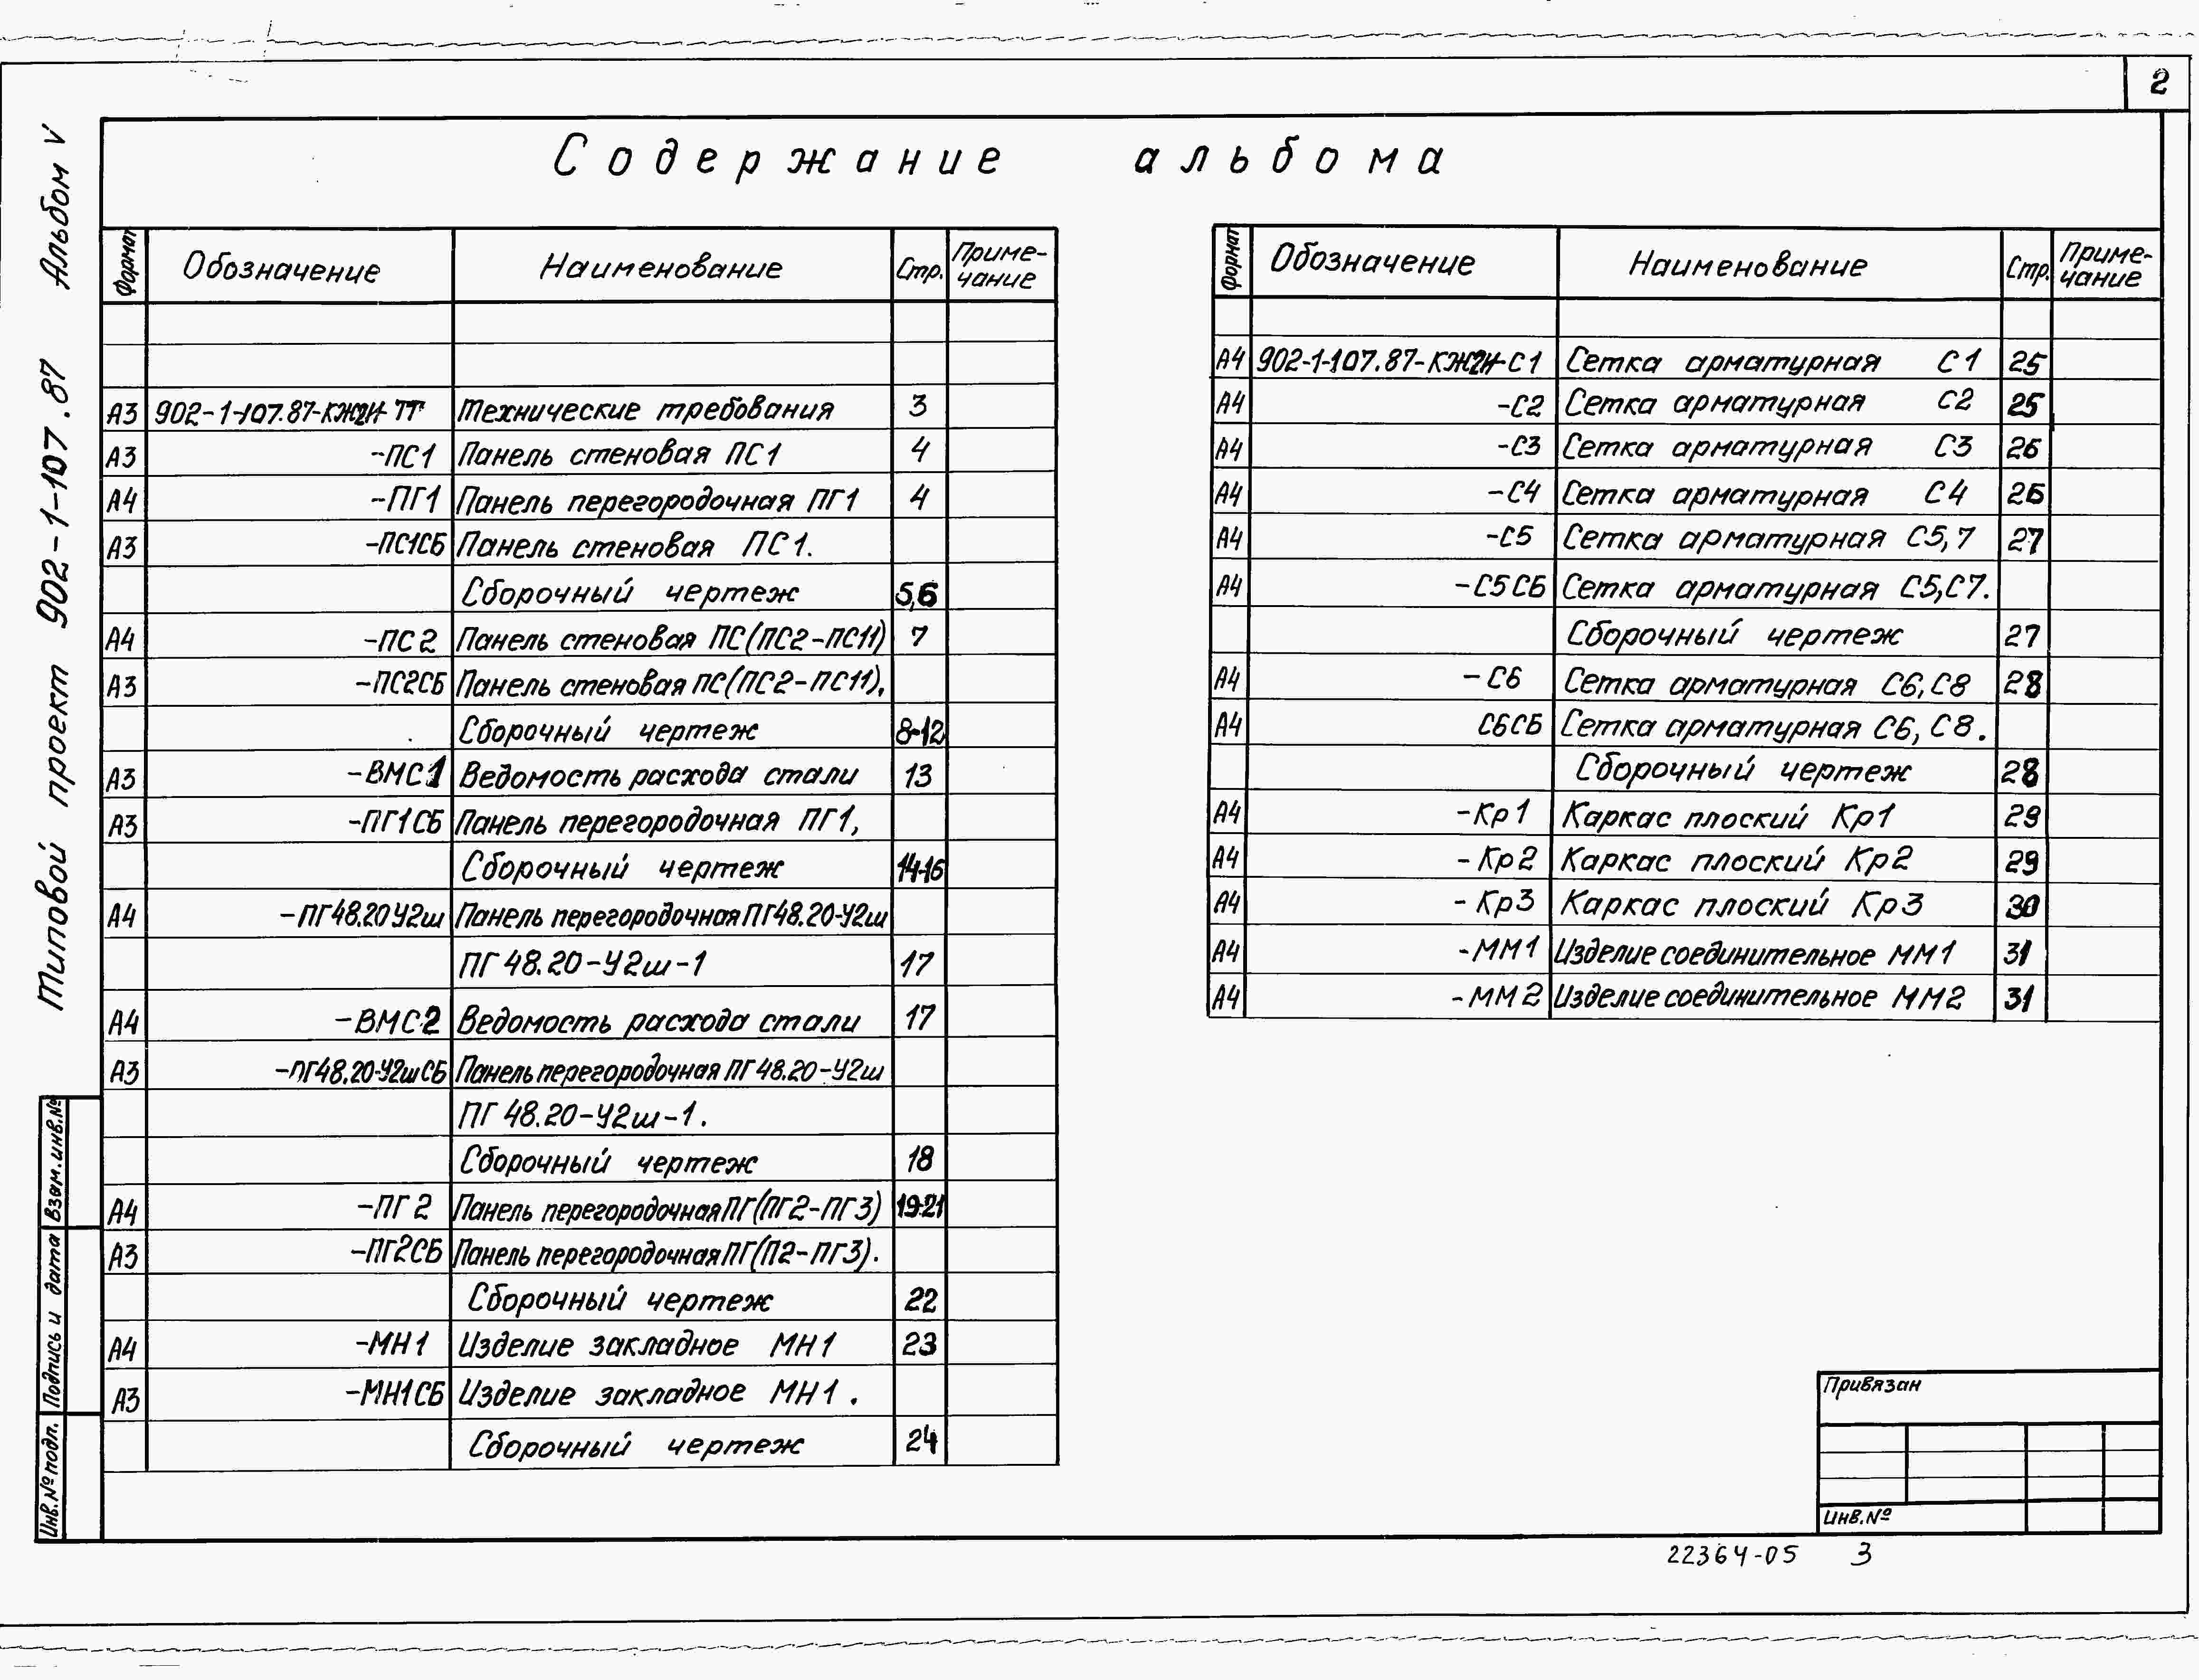 2
Содержание альбома
Типовой проект 902-1-107.87 Альбом V
Формат Обозначение Наименование Стр. Приме-
чание
А3 902-1-107.87-КЖ2И-ТТ Технические требования 3
А3 -ПС1 Панель стеновая ПС1 4
А4 -ПГ1 Панель перегородочная ПГ1 4
А3 -ПС1СБ Панель стеновая ПС1.
Сборочный чертеж 5,6
А4 -ПС2 Панель стеновая ПС(ПС2-ПС11) 7
А3 -ПС2СБ Панель стеновая ПС(ПС2-ПС11).
Сборочный чертеж 8-12
А3 -ВМС1 Ведомость расхода стали 13
А3 -ПГ1СБ Панель перегородочная ПГ1,
Сборочный чертеж 14-16
А4 -ПГ48.20У2ш Панель перегородочная ПГ48.20-У2ш
ПГ48.20-У2ш-1 17
А4 -ВМС2 Ведомость расхода стали 17
А3 -ПГ48.20-У2шСБ Панель перегородочная ПГ48.20-У2ш
ПГ48.20-У2ш-1.
Сборочный чертеж 18
А4 -ПГ2 Панель перегородочная ПГ(ПГ2-ПГ3) 19-21
А3 -ПГ2СБ Панель перегородочная ПГ(П2-ПГ3).
Сборочный чертеж 22
А4 -МН1 Изделие закладное МН1 23
А3 -МН1СБ Изделие закладное МН1.
Сборочный чертеж 24
Формат Обозначение Наименование Стр. Приме-
чание
А4 902-1-107.87-КЖ2И-С1 Сетка арматурная С1 25
А4 -С2 Сетка арматурная С2 25
А4 -С3 Сетка арматурная С3 26
А4 -С4 Сетка арматурная С4 26
А4 -С5 Сетка арматурная С5,7 27
А4 -С5СБ Сетка арматурная С5,С7.
Сборочный чертеж 27
А4 -С6 Сетка арматурная С6,С8 28
А4 С6СБ Сетка арматурная С6,С8.
Сборочный чертеж 28
А4 -Кр1 Каркас плоский Кр1 29
А4 -Кр2 Каркас плоский Кр2 29
А4 -Кр3 Каркас плоский Кр3 30
А4 -ММ1 Изделие соединительное ММ1 31
А4 -ММ2 Изделие соединительное ММ2 31
Взам.инв.№
Подпись и дата
Инв.№ подл.
Привязан
Инв.№
22364-05 3